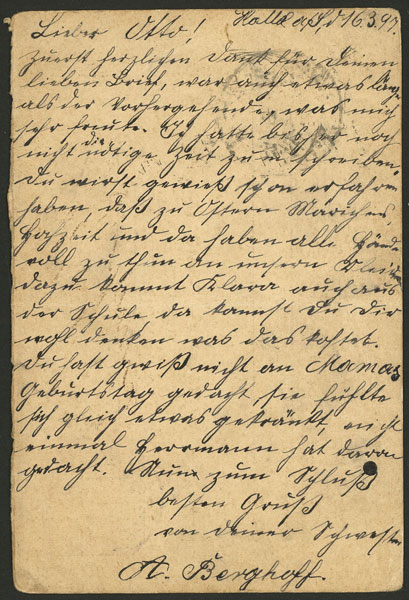 Halle a/S, d 16.3.97.
Lieber Otto!
zuerst herzlichen Dank für Deinen
lieben Brief, war auch etwas länger
als der Vorhergehende, was mich
sehr freute. Ich hatte bis jetzt noch
nicht die nötige Zeit zum schreiben,
Du wirst gewieß schon erfahren
haben, daß zu Ostern Mariches
Hochzeit und da haben alle Hände
voll zu thun an unsern Kleider
dazu kommt Klara auch aus
der Schule da kannst Du Dir
wohl denken was das kostet.
Du hast gwiß nicht an Mamas
Geburtstag gedacht sie fühlte
sich gleich etwas gekränkt, nicht
einmal Herrmann hat daran
gedacht. Nun zum Schluß
besten Gruß
von deiner Schwester
A. Berghoff.